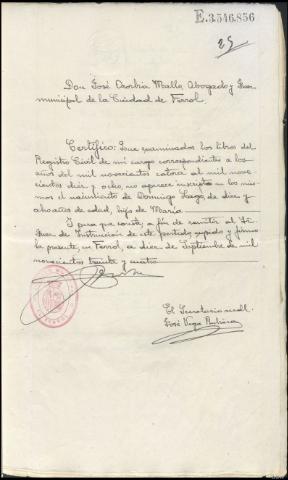 E.3.546.856
25
Don José Mallo, Abogado y Juez
municipal de la Ciudad de Ferrol.
Certifico: Que examinados los libros del
Registro Civil de mi cargo correspondientes a los
años del mil novecientos catorce al mil nove-
cientos diez y ocho, no aparece inscripto en los mis-
mos el nacimiento de Domingo de diez y
ocho años de edad, hijo de María
Y para que conste, a fin de remitir al Sr.
Juez de Instrucción de este partido, expido y firmo
la presente en Ferrol, a diez de Septiembre de mil
novecientos treinta y cuatro.
El Secretario
José Vega